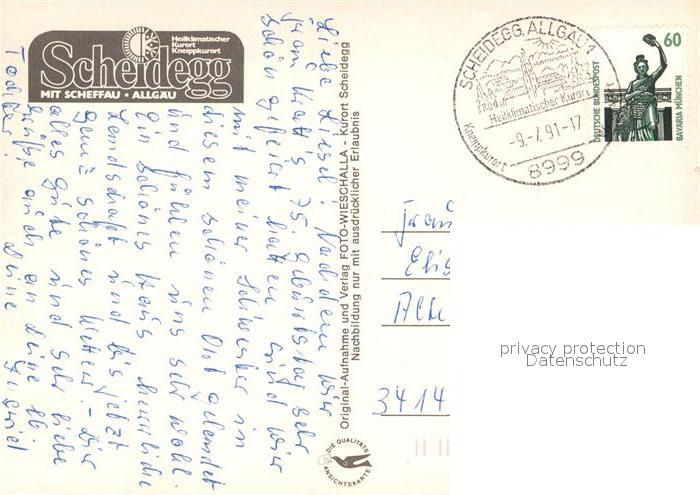 Scheidegg
Heilklimatischer
Kurort
Kneippkurort
MIT SCHEFFAU · ALLGÄU
Liebe Liesel! Nachdem wir
75 Geburtstag sehr
schön gefeiert hatten sind wir
mit meiner Schwester in
diesem schönen Ort gelandet
und fühlen uns sehr wohl.
Ein schönes Haus herrliche
Landschaft und bis jetzt
schönes Wetter. - Dir
alles Gute und sehr liebe
Grüße auch an Deine lb.
Tochter. Deine
Original-Aufnahme und Verlag FOTO-WIESCHALLA - Kurort Scheidegg
Nachbildung nur mit ausdrücklicher Erlaubnis
DIE QUALITÄTS
ANSICHTSKARTE
SCHEIDEGG, ALLGÄU 1
Heilklimatischer Kurort
-9.-7.91-17
Kneippkurort
8999
60
DEUTSCHE BUNDESPOST
BAVARIA MÜNCHEN
3414
privacy protection
Datenschutz